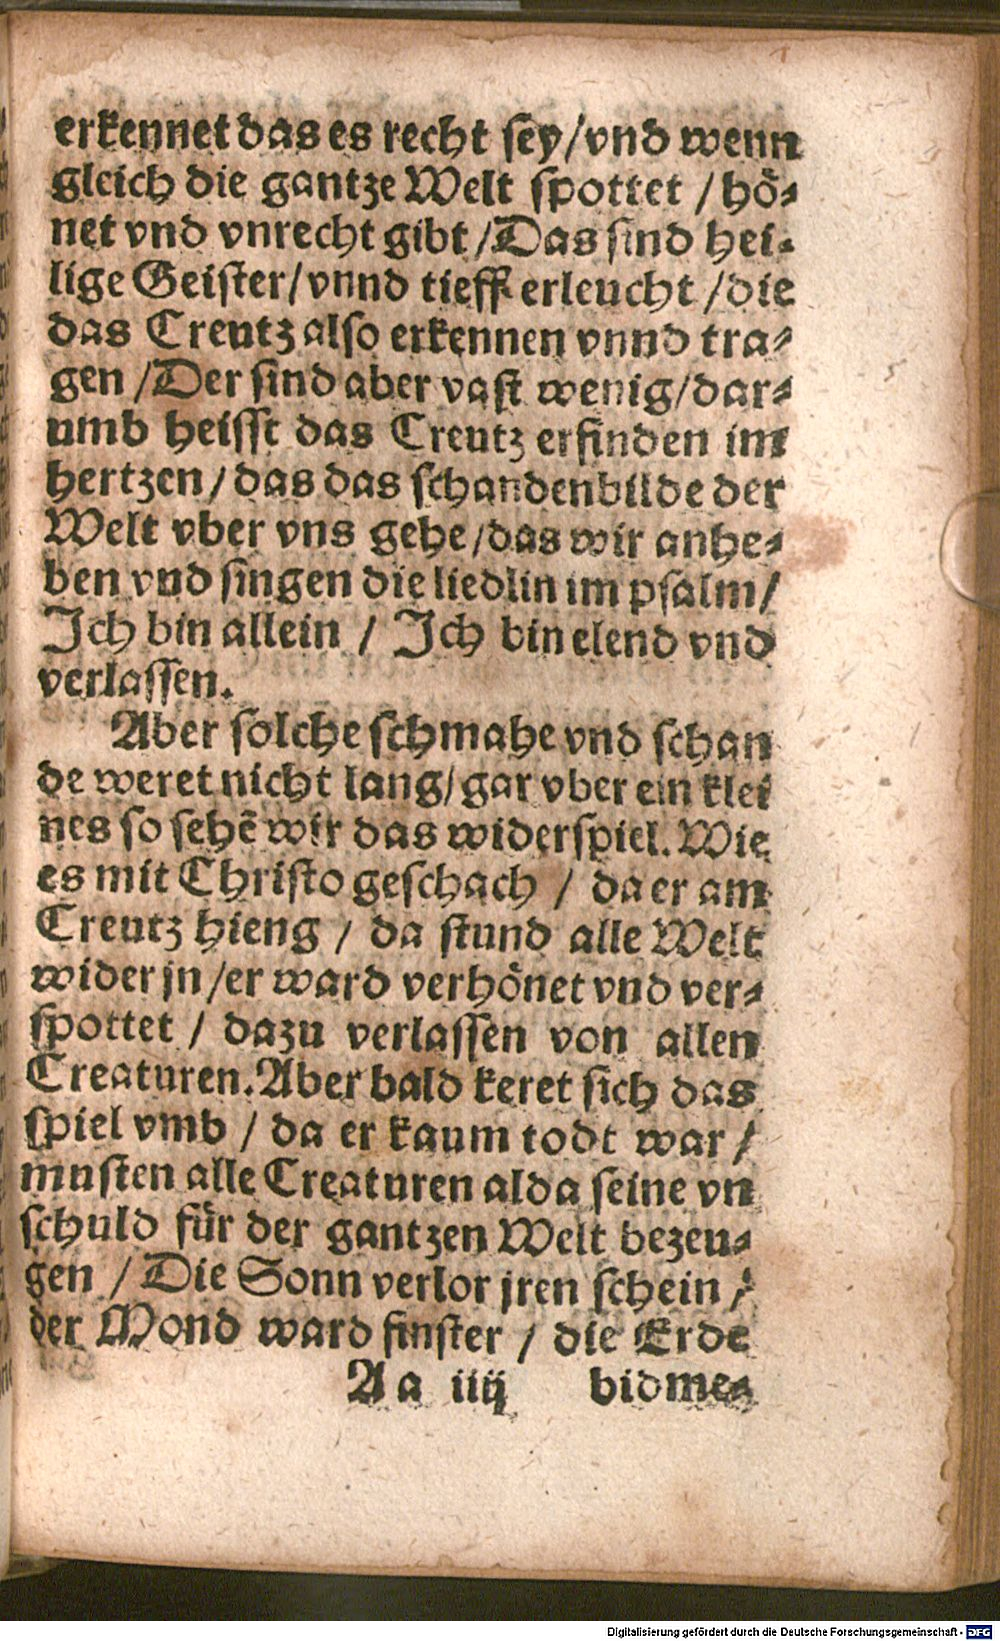 erkennet das es recht sey/vnd wenn
gleich die gantze Welt spottet / hö-
net vnd vnrecht gibt /Das sind hei-
lige Geister/vnnd tieff erleucht /die
das Creutz also erkennen vnnd tra-
gen /Der sind aber vast wenig/dar-
umb heisst das Creutz erfinden im
hertzen/das das schandenbilde der
Welt vber vns gehe/das wir anhe-
ben vnd singen die liedlin im psalm/
Ich bin allein / Ich bin elend vnd
verlassen.
Aber solche schmahe vnd schan
de weret nicht lang/gar vber ein klei
nes so sehē wir das widerspiel. Wie
es mit Christo geschach / da er am
Creutz hieng / da stund alle Welt
wider jn /er ward verhönet vnd ver-
spottet / dazu verlassen von allen
Creaturen. Aber bald keret sich das
spiel vmb / da er kaum todt war /
musten alle Creaturen alda seine vn
schuld für der gantzen Welt bezeu-
gen / Die Sonn verlor jren schein /
der Mond ward finster / die Erde
Aa iiij bidme-
Digitalisierung gefördert durch die Deutsche Forschungsgemeinschaft - DFG